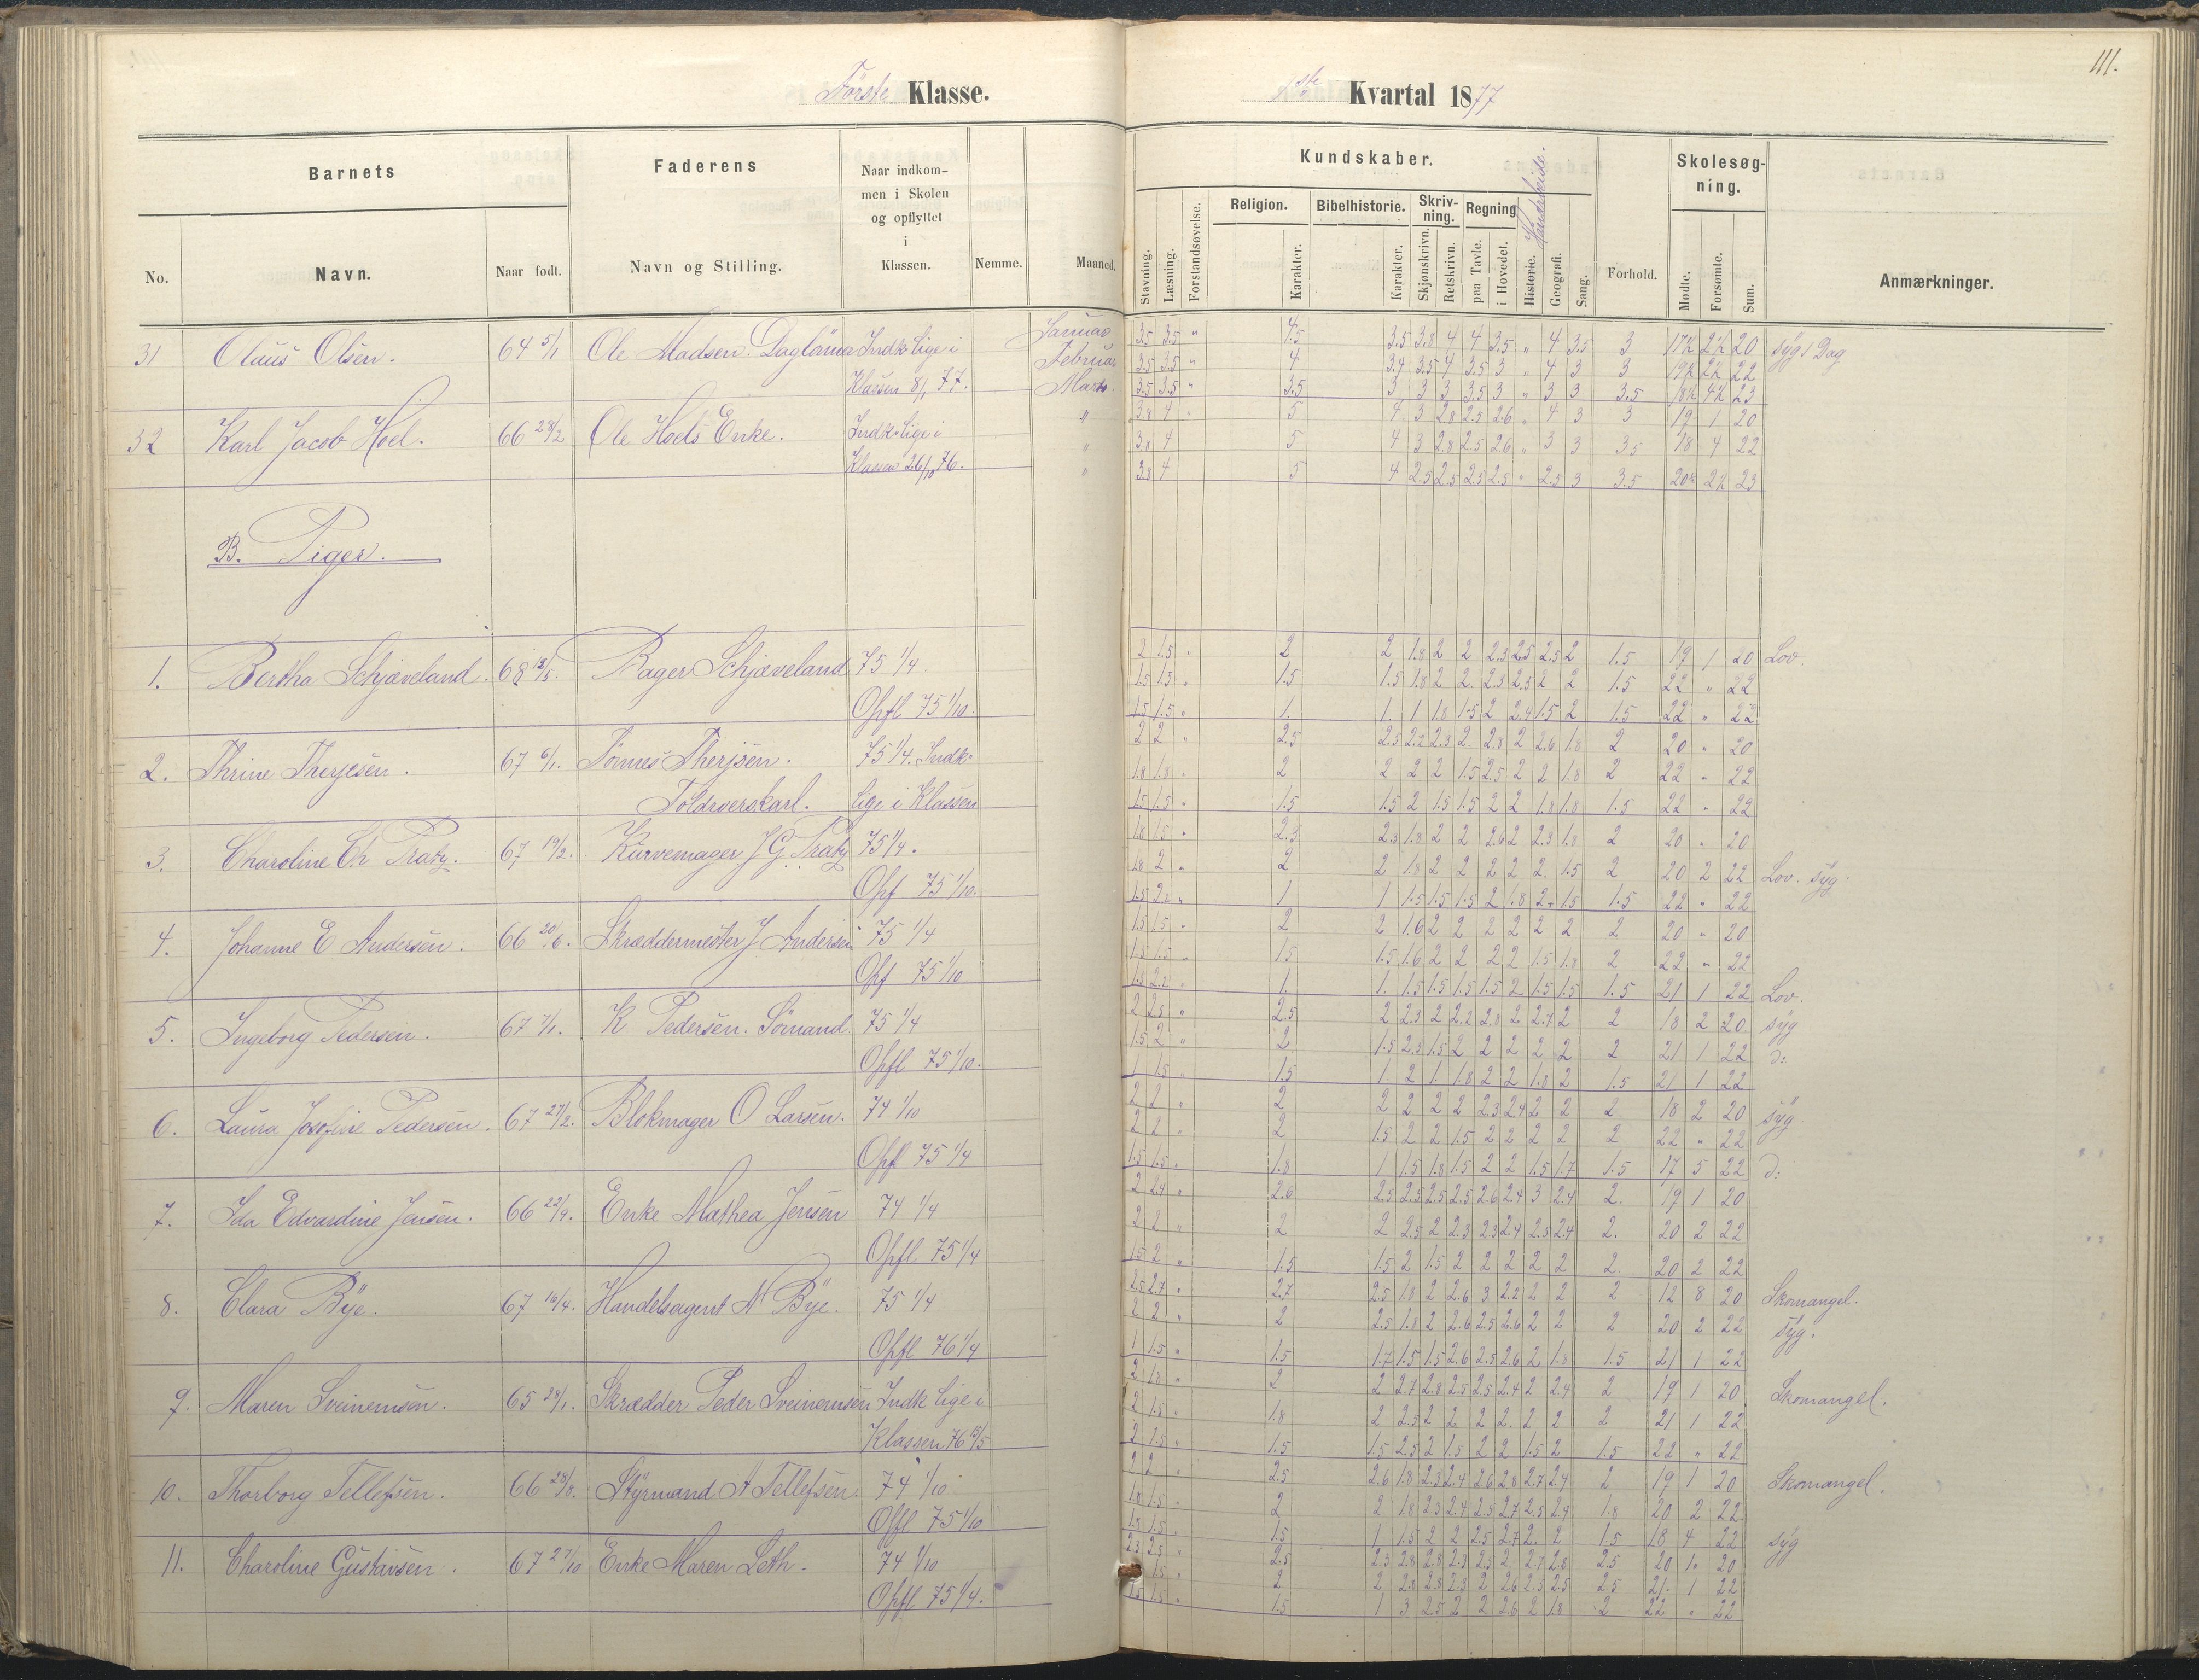 111.
Første Klasse.
1ste Kvartal 1877
Barnets
Faderens
Naar indkommen i Skolen og opflyttet i Klassen.
Nemme.
Maaned.
No.
Navn.
Naar født.
Navn og Stilling.
Kundskaber.
Stavning.
Læsning.
Forstandsøvelse.
Religion.
Karakter.
Bibelhistorie.
Karakter.
Skrivning.
Skjønskrivn.
Retskrivn.
Regning
paa Tavle.
i Hovedet.
Historie. Haandarbeide.
Geografi.
Sang.
Forhold.
Skolesøgning.
Mødte.
Forsømte.
Sum.
Anmærkninger.
31 Olaus Olsen. 64 5/1 Ole Madsen. Indk. lige i Januar 3.5 3.5 " 4.5 3.5 3.8 4 4 3.5 " 4 3.5 3 17½ 2½ 20 syg 1 Dag
Februar 3.5 3.5 " 4 3.4 3.5 4 3.5 3 " 4 3 3 19½ 2½ 22
Klassen 8/1 77. Marts. 3.5 3.5 " 3.5 3 3 3 3.5 3 " 3 3 3.5 18½ 4½ 23
32 Karl Jacob Hoel. 66 28/2 Ole Hoels Enke. Indk. lige i " 3.8 4 " 5 4 3 2.8 2.5 2.6 " 4 3 3 19 1 20
" 3.8 4 5 4 3 2.8 2.5 2.6 " 3 3 3.5 18 4 22
Klassen 26/10 76. " 3.8 4 5 4 2.5 2.5 2.5 2.5 " 2.5 3 3.5 20½ 2½ 23
B. Piger.
1. Bertha Schjæveland. 68 12/5. Rager Schjæveland 75 1/4. 2 1.5 " 2 2 1.8 2 2 2.3 2.5 2.5 2 1.5 19 1 20 Lov.
1.5 1.5 " 1.5 1.5 1.8 2 2. 2.3 2.5 2 2 1.5 22 " 22
Opfl 75 1/10. 1.5 1.5 " 1. 1. 1 1.8 1.5 2 2.4 1.5 2 1.5 22 " 22
2. Thrine Therjesen. 67 6/1. Tønnes Therjsen. 75 1/4. Indk. 2 2 " 2.5 2.5 2.2 2.3 2. 2.8 2 2.6 1.8 2 20 " 20
1.8 1.8 " 2 2 2 2 1.5 2.5 2 2 1.8 2 22 " 22
lige i Klassen 1.5 1.5 " 1.5 1.5 2 1.5 1.5 2 2 1.8 1.8 1.5 22 " 22
3. Charoline Ch Tratz. 67 19/2. Kurvemager J G. Tratz 75 1/4. 1.8 1.5 " 2.3 2.3 1.8 2 2 2.6 2 2.3 1.8 2 20 " 20
1.8 2 " 2 2 1.8 2 2 2 2 2. 1.5 2 20 2 22 Lov. syg.
Opf 75 1/10. 1 1 1.5 1.5 1.5 2 1.8 2+ 1.5 1.5 22 " 22
4. Johanne E Andersen. 66 20/6. Skræddermester J Andersen 75 1/4 1.5 1.5 " 2 2 1.6 2 2 2 2 2 2 2 20 " 20
1.5 1.5 " 1.5 1.5 1.6 2 2 2 2 1.5 1.8 2 22 " 22
Opf 75 1/10. 1.5 2.2 " 1. 1. 1.5 1.5 1.5 1.5 2 1.5 1.5 1.5 21 1 22 Lov.
5. Ingeborg Pedersen. 67 7/1. K Pedersen. Sømand 75 1/4 2 2.5 " 2.5 2 2.3 2 2.2 2.8 2 2.7 2 2 18 2 20. syg
1.5 2 " 2 1.5 2.3 1.5 2 2 2 2 2 2 21 1 22 d:
Opfl 75 1/10. 1 1.5 " 1.5 1. 2 1. 1.8 2 2 1.8 2 1.5 21 1 22
6. Laura Josefine Pedersen. 67 27/2. Blokmager O Larsen. 74 1/10 2 2 " 2 2 2 2 2 2.3 2.4 2 2 2 18 2 20 syg
2 2 " 2 1.5 2 2 1.5 2 2 2 2 2 22 " 22
Opfl 75 1/4 1.5 1.5 " 1.8 1 1.5 1.8 1.5 2 2 1.5 1.7 1.5 17 5 22 d:
7. Ida Edvardine Jensen. 66 22/9. Enke Mathea Jensen 74 1/4 2 2.4 " 2.6 2.5 2.5 2.5 2.5 2.6 2.4 3 2.4 2. 19 1 20
2 2 " 2 2 2.5 2 2.3 2.3 2.4 2.3 2.4 2. 20 2 22
Opfl. 75 1/4 1.5 2 " 1.5 1.5 2 1.5 2 2 2 2 2 2. 20 2 22
8. Clara Bÿe. 67 16/4. Handelsagent N Bÿe. 75 1/4 2.5 2.7 " 2.7 2.5 1.8 2 2.6 3 2.2 2 2 2 12 8 20 Skomangel.
2 2 " 2 2.5 1.8 2 2.6 2.5 2.6 2 2 2 20 2 22 syg.
Opfl 76 1/4 1 1.5 " 1.5 1.7 1.5 1.5 2.6 2.5 2.6 2 1.8 1.5 21 1 22
9. Maren Sveinemsen. 65 24/1. Skrædder Peder Sveinemsen Indk lige i 2 1.8 " 2 2 2.7 2.8 2.5 2.5 2.4 2 2.4 2 19 1 20 Skomangel.
2 1.5 " 1.8 2 2.5 2 2 2 2. 2 2 2 21 1 22
Klassen 76 2 1.5 " 1.5 1.5 2.5 2 1.5 2 2 1.5 2 1.5 22 " 22
10. Thorborg Tellefsen. 66 28/8. Stÿrmand A Tellefsen. 74 1/10 2 2 " 2.5 2.6 1.8 2.3 2.4 2.6 2.8 2.7 2.4 2 19 1 20 Skomangel.
1.8 1.5 " 2 2 1.8 2.3 2.4 2.5 2.7 2.5 2.4 1.8 20 2 22
Opfl 75 1/10 1.5 " 1.5 1 1.5 2 2 2.5 2.7 2. 2 1.5 18 4 22 syg
11. Charoline Gustavsen. 67 27/10 Enke Maren Leth. 74 1/10 2.3 2.5 " 2.5 2.3 2.8 2.8 2.3 2.5 2 2.7 2.8 2.5 20 " 20
1.5 " 2 2 2.8 2.8 2.3 2 2.6 2.3 2.5 2.5 21. 1 22
Opfl 75 1/4. 1.5 1.5 " 1.5 1 3 2.5 2 2 2.6 2 1.8 2 22 " 22